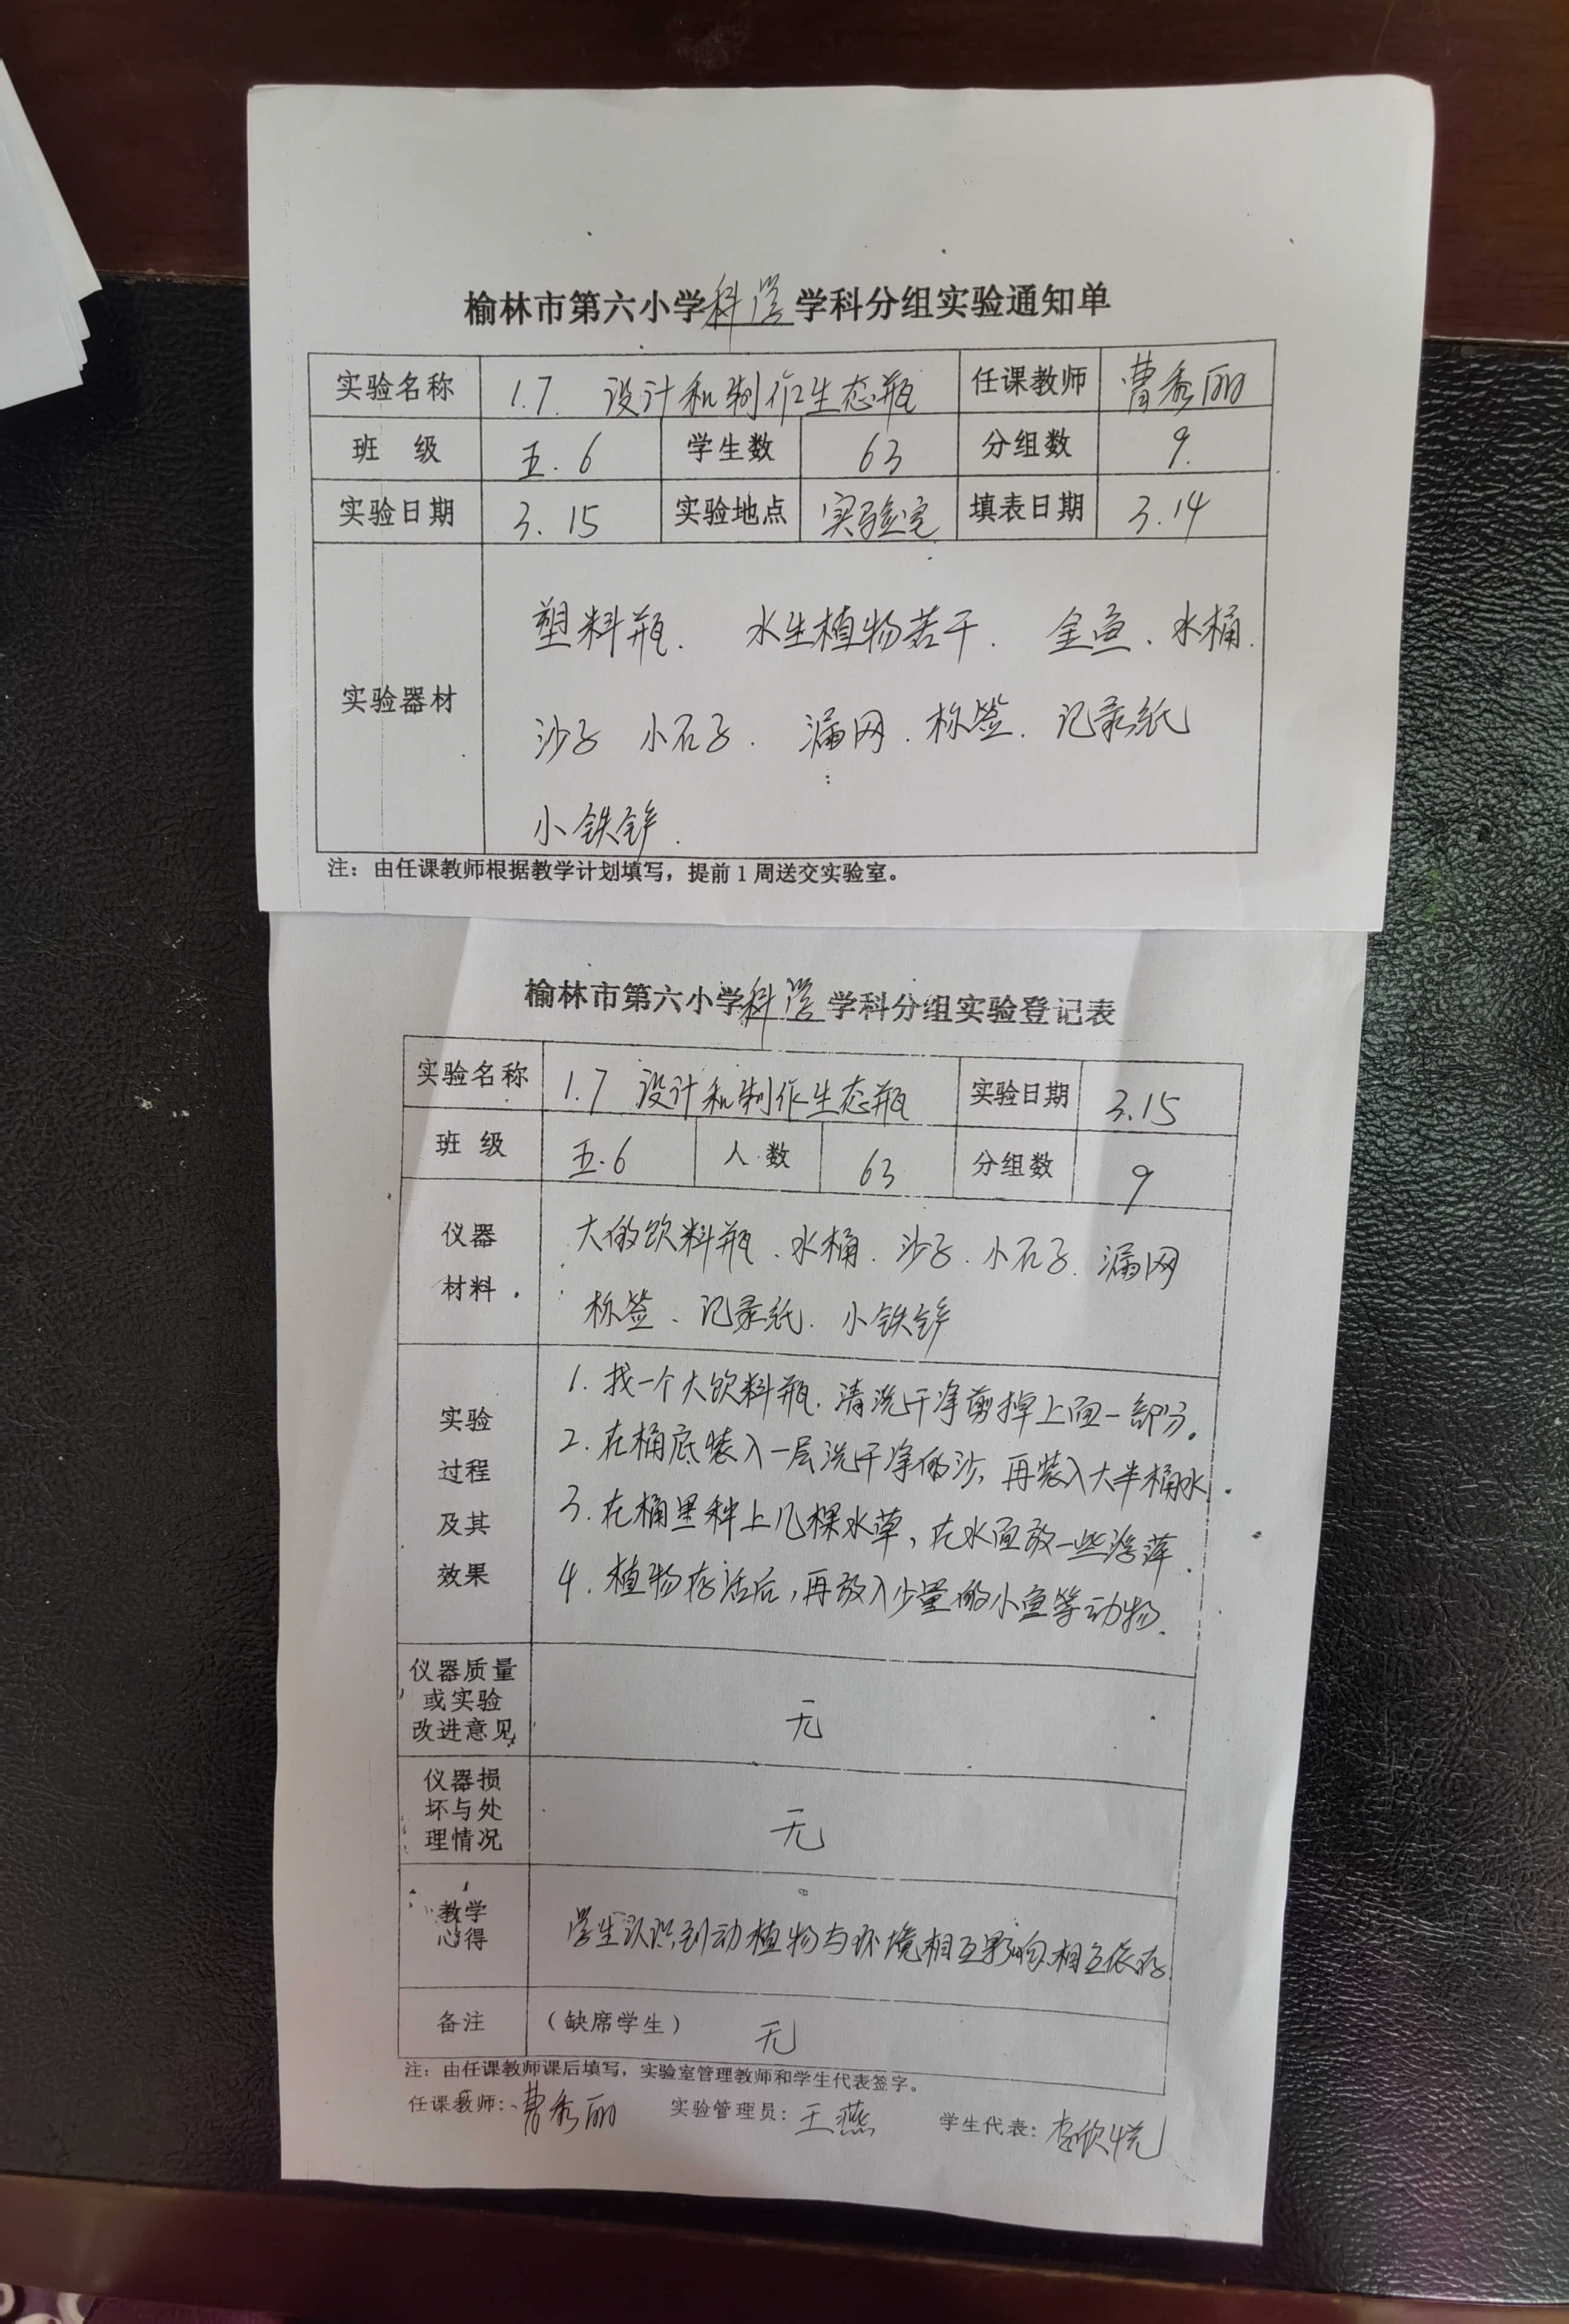 榆林市第六小学科学学科分组实验通知单
实验名称 1.7 设计和制作生态瓶 任课教师 曹秀丽
班 级 五.6 学生数 63 分组数 9
实验日期 3.15 实验地点 实验室 填表日期 3.14
实验器材
塑料瓶. 水生植物若干. 金鱼、水桶.
沙子 小石子. 漏网. 标签. 记录纸
小铁铲.
注：由任课教师根据教学计划填写，提前1周送交实验室。
榆林市第六小学科学学科分组实验登记表
实验名称 1.7 设计和制作生态瓶 实验日期 3.15
班 级 五.6 人 数 63 分组数 9
仪器
材料
大的饮料瓶、水桶. 沙子. 小石子. 漏网
标签、记录纸. 小铁铲
实验
过程
及其
效果
1. 找一个大饮料瓶. 清洗干净剪掉上面一部分。
2. 在桶底装入一层洗干净的沙, 再装入大半桶水.
3. 在桶里种上几棵水草, 在水面放一些浮萍.
4. 植物存活后, 再放入少量的小鱼等动物.
仪器质量
或实验
改进意见
无
仪器损
坏与处
理情况
无
教学
心得
学生认识到动植物与环境相互影响相互依存.
备注 （缺席学生） 无
注：由任课教师课后填写，实验室管理教师和学生代表签字。
任课教师：曹秀丽 实验管理员：王燕 学生代表：李欣悦